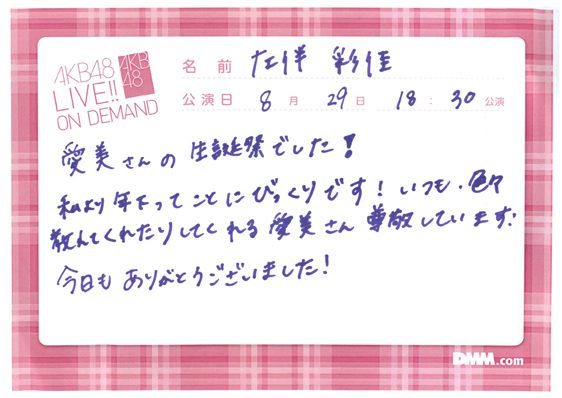 AKB48
LIVE!!
ON DEMAND
AKB
48
名前 左伴 彩佳
公演日 8月 29日 18:30 公演
愛美さんの生誕祭でした!
私より年下ってことにびっくりです!いつも、色々
教えてくれたりしてくれる愛美さん尊敬しています!
今日もありがとうございました!
DMM.com